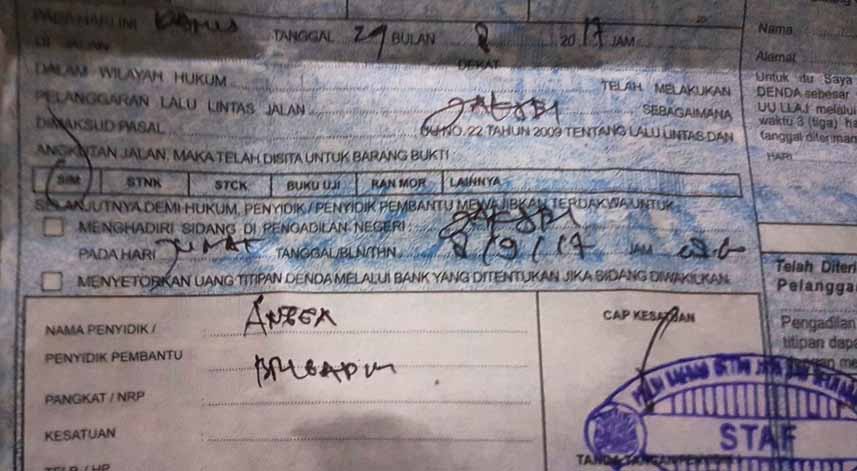 PADA HARI INI KAMIS TANGGAL 29 BULAN 8 2017 JAM
DI JALAN DEKAT
DALAM WILAYAH HUKUM TELAH MELAKUKAN
PELANGGARAN LALU LINTAS JALAN SEBAGAIMANA
DIMAKSUD PASAL UU NO. 22 TAHUN 2009 TENTANG LALU LINTAS DAN
ANGKUTAN JALAN, MAKA TELAH DISITA UNTUK BARANG BUKTI
SIM STNK STCK BUKU UJI RAN MOR LAINNYA
SELANJUTNYA DEMI HUKUM, PENYIDIK / PENYIDIK PEMBANTU MEWAJIBKAN TERDAKWA UNTUK
MENGHADIRI SIDANG DI PENGADILAN NEGERI :
PADA HARI JUMAT TANGGAL/BLN/THN 8/9/17 JAM
MENYETORKAN UANG TITIPAN DENDA MELALUI BANK YANG DITENTUKAN JIKA SIDANG DIWAKILKAN.
NAMA PENYIDIK /
PENYIDIK PEMBANTU
PANGKAT / NRP
KESATUAN
TELP / HP
CAP KESATUAN
STAF
Nama
Alamat
Untuk du Saya
DENDA sebesar
UU LLAJ melalui
waktu 3 (tiga) ha
tanggal diteriman
HARI
Telah Diteri
Pelangga
Pengadilan
titipan dapa